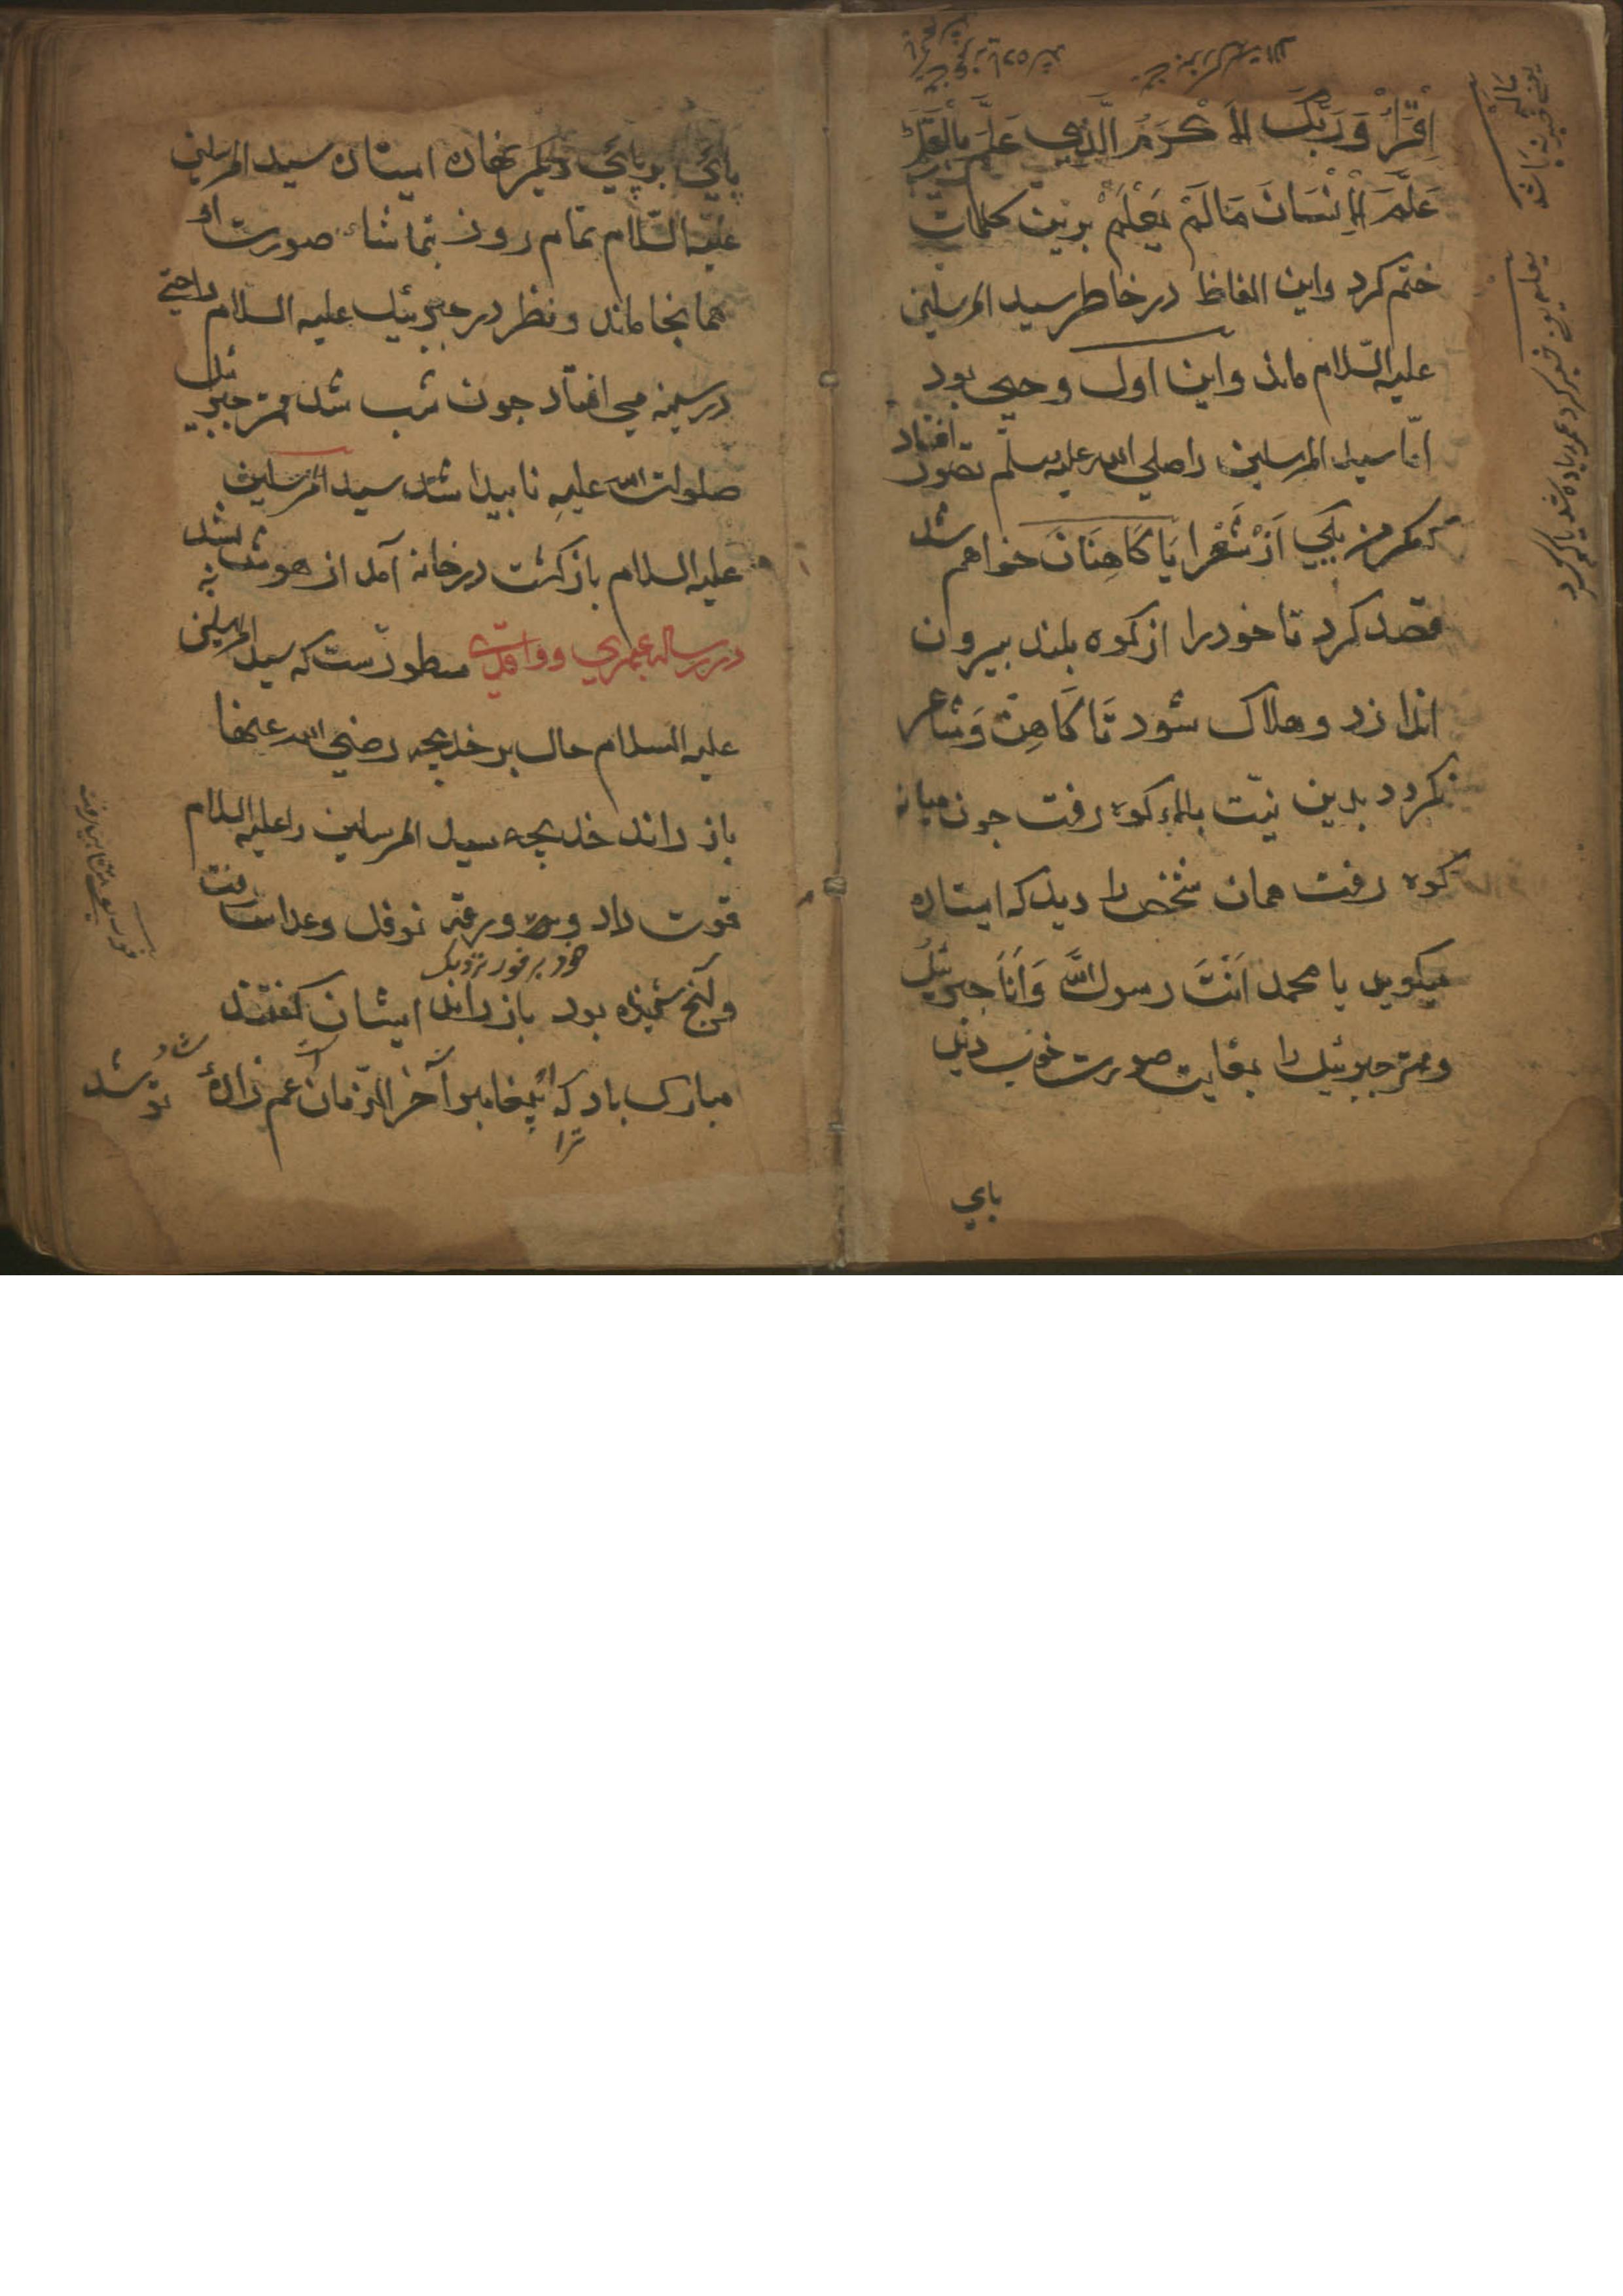 اِقْرَأْ وَرَبُّكَ الْاَكْرَمُ الَّذِي عَلَّمَ بِالْقَلَمِ
عَلَّمَ الْاِنْسَانَ مَا لَمْ يَعْلَمْ برين كلمات
ختم كرد واين الفاظ در خاطر سيد المرسلين
عليه السّلام ماند واين اول وحي بود
امّا سيد المرسلين را صلي الله عليه وسلم تصور افتاد
كه مكر من يكي اَزْ شُعَرا يَا كَاهِنَانَ خواهم شد
قصد كرد تا خود را از كوه بلند بيرون
اندازد وهلاك شود تَا كَاهِنْ وَشاعر
نكردد بدين نيّت بالاء كوه رفت جون ميانه
كوه رفت همان شخص را ديد كه ايستاده
ميكويد يا محمد اَنْتَ رسول اللّه وَاَنَا جبرئيل
ومهتر جبرئيل را بغايت صورت خوب ديد
باي
پائي بر پائي ديكر نهاده ايستاده سيد المرسلين
عليه السّلام تمام روز بتماشاء صورت او
همانجا ماند ونظر در جبرئيل عليه السلام راحتي
در سينه مي افتاد جون شب شد مهتر جبرئيل
صلوات الله عليه ناپيدا شد سيد المرسلين
عليه السلام باز كشت در خانه آمد از هوش بشد
در رساله عمري وواقدي مسطورست كه سيد المرسلين
عليه السلام حال بر خديجه رضي الله عنها
باز راند خديجه سيد المرسلين را عليه السلام
قوت داد و ورقه نوفل وعداس رفت
خود بر فور نزديك
وآنج شنيده بود باز راند ايشان كفتند
مبارك باد كه پيغامبر آخر الزمان عم زادهٔ تو شد
ترا